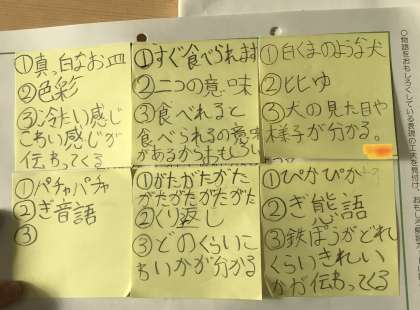 ①真っ白なお皿
②色彩
③冷たい感じ
こわい感じが
伝わってくる
①すぐ食べられます
②二つの意味
③食べれると
食べられるの意味
があるからおもしろい
①白くまのような犬
②ヒヒゆ
③犬の見た目や
様子が分かる。
①パチャパチャ
②ぎ音語
③
①がたがたがた
がたがたがたがた
②くり返し
③どのくらいこ
わいかが分かる
①ぴかぴか
②ぎ態語
③鉄ぽうがどれ
くらいきれい
かが伝わってくる
○物語をおもしろくしている表現の工夫を見付け、